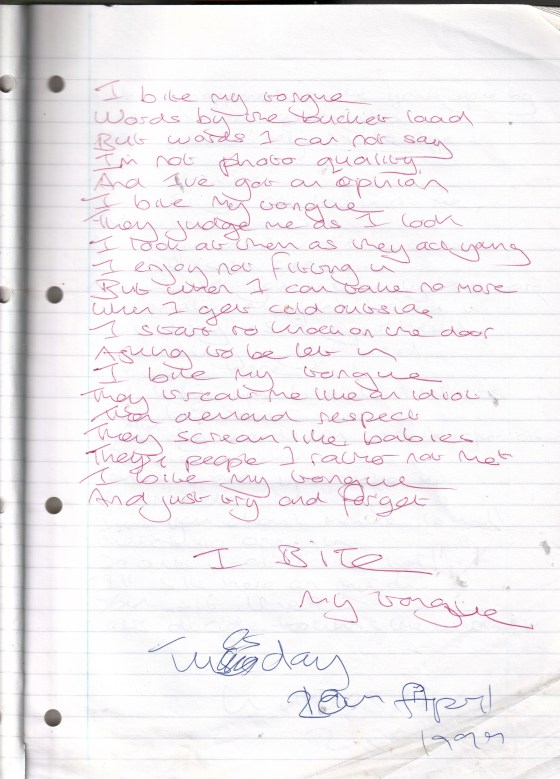 I bite my tongue
Words by the bucket load
But words I can not say
I'm not photo quality
And I've got an opinion
I bite my tongue
They judge me as I look
I look at them as they act
I enjoy not fitting in
But when I can take no more
when I get cold outside
I start to knock on the door
Asking to be let in
I bite my tongue
They treat me like an idiot
demand respect
They scream like babies
people I rather not met
I bite my tongue
And just try and forget
I Bite
my tongue
Tuesday
April